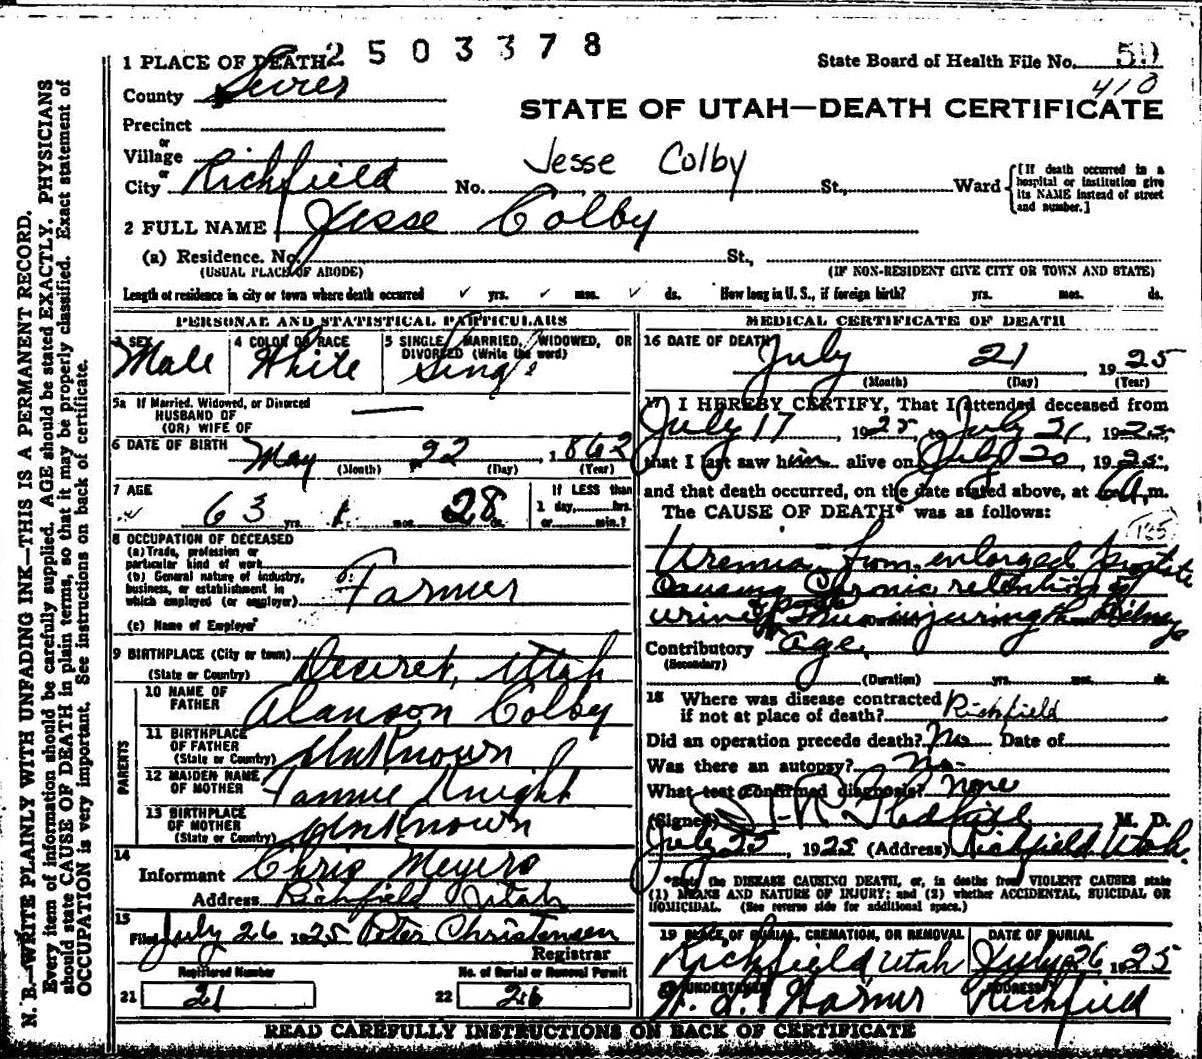 2503378
1 PLACE OF DEATH
State Board of Health File No. 50
410
County Sevier
STATE OF UTAH—DEATH CERTIFICATE
Precinct
or
Village
Jesse Colby
or
City Richfield No. St., Ward
[If death occurred in a hospital or institution give its NAME instead of street and number.]
2 FULL NAME Jesse Colby
(a) Residence. No. St.,
(USUAL PLACE OF ABODE) (IF NON-RESIDENT GIVE CITY OR TOWN AND STATE)
Length of residence in city or town where death occurred yrs. mos. ds. How long in U. S., if foreign birth? yrs. mos. ds.
PERSONAL AND STATISTICAL PARTICULARS
3 SEX Male
4 COLOR OR RACE White
5 SINGLE, MARRIED, WIDOWED, OR DIVORCED (Write the word)
5a If Married, Widowed, or Divorced
HUSBAND OF
(OR) WIFE OF
6 DATE OF BIRTH May 22, 1862
(Month) (Day) (Year)
7 AGE 63 yrs. mos. 28 ds.
If LESS than
1 day, hrs.
or min.?
8 OCCUPATION OF DECEASED
(a) Trade, profession or
particular kind of work
(b) General nature of industry,
business, or establishment in
which employed (or employer)
Farmer
(c) Name of Employer
9 BIRTHPLACE (City or town)
(State or Country) Deseret, Utah
PARENTS
10 NAME OF
FATHER Alanson Colby
11 BIRTHPLACE
OF FATHER
(State or Country) Unknown
12 MAIDEN NAME
OF MOTHER Fannie Knight
13 BIRTHPLACE
OF MOTHER
(State or Country) Unknown
14
Informant Chris Meyers
Address Richfield Utah
15
Filed July 26 1925 Peter Christensen
Registrar
Registered Number No. of Burial or Removal Permit
21 21 22 26
MEDICAL CERTIFICATE OF DEATH
16 DATE OF DEATH
July 21, 1925
(Month) (Day) (Year)
17 I HEREBY CERTIFY, That I attended deceased from
July 17, 1925, to July 21, 1925
that I last saw him alive on July 20, 1925,
and that death occurred, on the date stated above, at 6 A. m.
The CAUSE OF DEATH* was as follows:
135
Uremia from enlarged prostate
causing Chronic retention of
urine thus injuring the Kidneys
Contributory Age
(Secondary)
(Duration) yrs. mos. ds.
18 Where was disease contracted
if not at place of death? Richfield
Did an operation precede death? No Date of
Was there an autopsy? No
What test confirmed diagnosis? None
(Signed) M. D.
July 25, 1925 (Address) Richfield Utah.
*State the DISEASE CAUSING DEATH, or, in deaths from VIOLENT CAUSES state
(1) MEANS AND NATURE OF INJURY; and (2) whether ACCIDENTAL, SUICIDAL OR
HOMICIDAL. (See reverse side for additional space.)
19 PLACE OF BURIAL, CREMATION, OR REMOVAL DATE OF BURIAL
Richfield Utah July 26 1925
UNDERTAKER ADDRESS
Richfield
READ CAREFULLY INSTRUCTIONS ON BACK OF CERTIFICATE
N. B.—WRITE PLAINLY WITH UNFADING INK—THIS IS A PERMANENT RECORD.
Every item of information should be carefully supplied. AGE should be stated EXACTLY. PHYSICIANS
should state CAUSE OF DEATH in plain terms, so that it may be properly classified. Exact statement of
OCCUPATION is very important. See instructions on back of certificate.